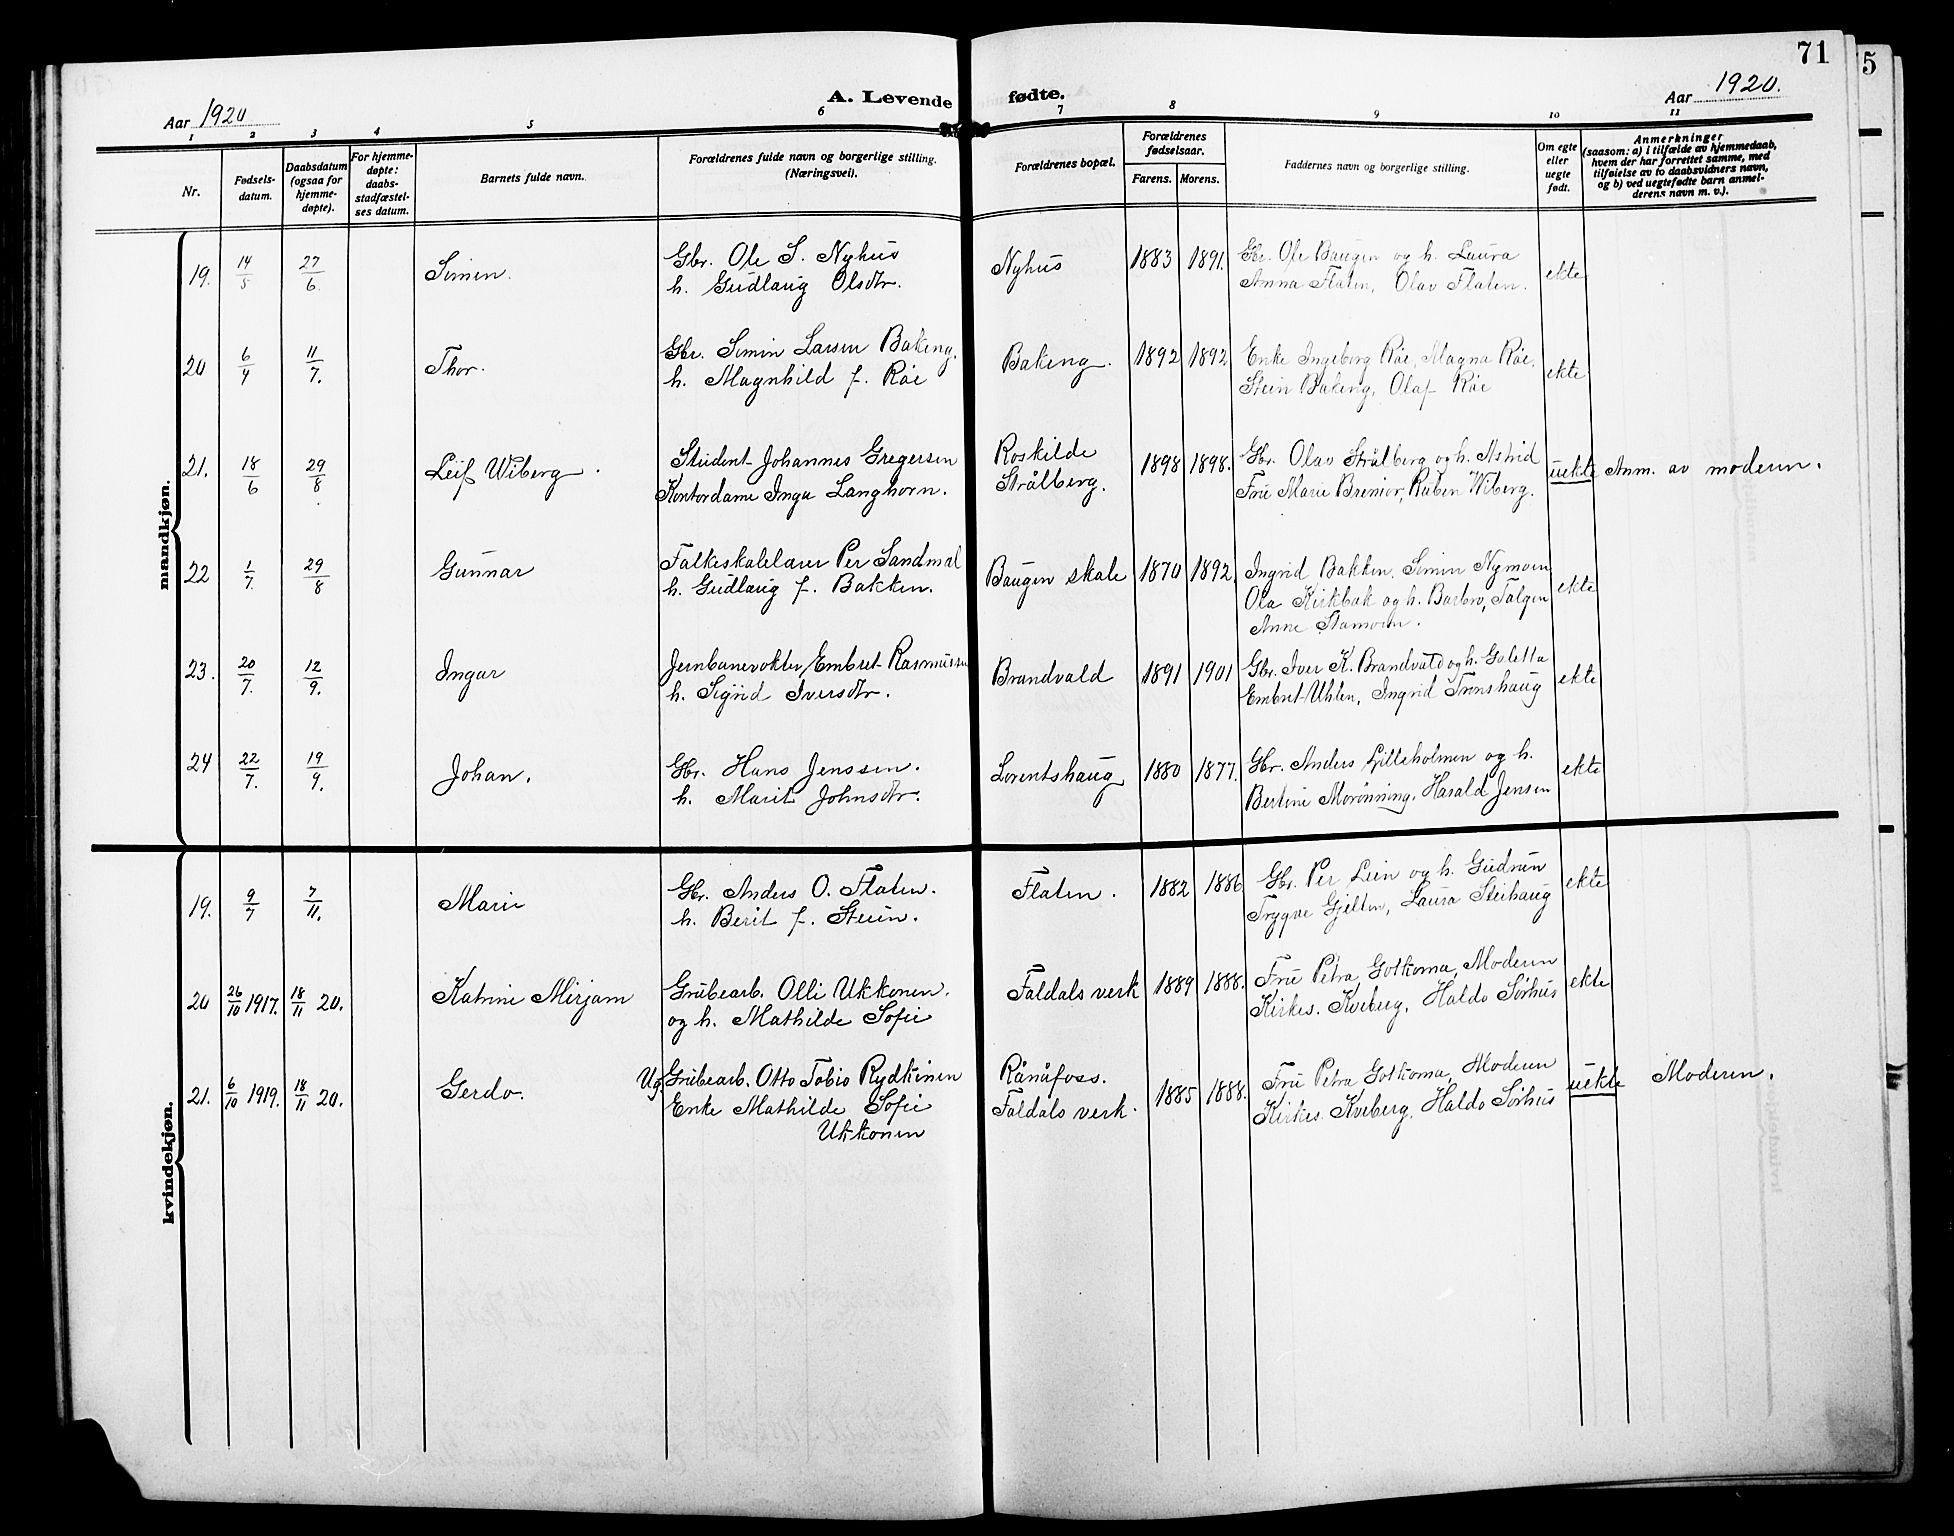 71
5
Aar 1920
A. Levende fødte.
Aar 1920.
1 2 3 4 5 6 7 8 9 10 11
Nr.
Fødsels-
datum.
Daabsdatum
(ogsaa for
hjemme-
døpte).
For hjemme-
døpte:
daabs-
stadfæstel-
ses datum.
Barnets fulde navn.
Forældrenes fulde navn og borgerlige stilling.
(Næringsvei).
Forældrenes bopæl.
Forældrenes
fødselsaar.
Farens. Morens.
Faddernes navn og borgerlige stilling.
Om egte
eller
uegte
født.
Anmerkninger
(saasom: a) i tilfælde av hjemmedaab,
hvem der har forrettet samme, med
tilføielse av to daabsvidners navn,
og b) ved uegtefødte barn anmel-
derens navn m. v.).
mandkjøn.
19. 14/5 27/6. Simen. Gbr. Ole S. Nyhus Nyhus 1883 1891. Gbr. Ole Baugen og h. Laura ekte
h. Gudlaug Olsdtr. Anna Flaten, Olav Flaten.
20 6/4 11/7. Thor. Gbr. Simin Larsen Bakeng. Bakeng. 1892 1892 Enke Ingeborg Røe, Magna Røe, ekte
h. Magnhild f. Røe Stein Bakeng, Olaf Røe
21. 18/6 29/8. Leif Wiberg. Student Johannes Gregersen Roskilde 1898 1898. Gbr. Olav Strålberg og h. Astrid uekte Anm. av moderen.
Kontordame Inga Langhorn. Strålberg. Fru Marie Bremior, Ruben Wiberg.
22 1/7. 29/8 Gunnar Folkeskolelærer Per Sandmæl Baugen skole 1870 1892. Ingrid Bakken, Simen Nymoen ekte
h. Gudlaug f. Bakken. Ola Kirkbak og h. Barbro, Tolgen
Anne Stamoen.
23. 20/7. 12/9. Ingar Jernbanevokter Embret Rasmussen Brandvald 1891 1901 Gbr. Iver K. Brandvald og h. Goletta ekte
h. Sigrid Iversdtr. Embret Uhlen, Ingrid Tronshaug
24 22/7. 19/9. Johan. Gbr. Hans Jenssen. Lorentshaug 1880 1877. Gbr. Anders Lilleholmen og h. ekte
h. Marit Johnsdtr. Bertine Morønning, Harald Jensen
kvindekjøn.
19. 9/7 7/11. Marie Gbr. Anders O. Flaten. Flaten. 1882 1886 Gbr. Per Lien og h. Gudrun ekte
h. Berit f. Steien. Trygve Gjelten, Laura Steihaug
20 26/10 1917. 18/11 20. Katrine Mirjam Grubearb. Olli Ukkonen. Foldals verk 1889 1888. Fru Petra Gotkoma, Moderen ekte
og h. Mathilde Sofie Kirkes. Kveberg, Haldo Sørhus
21. 6/10 1919. 18/11 20. Gerdo. Ug. Grubearb. Otto Tobio Rydkinen Rånåfoss. 1885 1888. Fru Petra Gotkoma, Moderen uekte Moderen.
Enke Mathilde Sofie Foldals verk. Kirkes. Kveberg, Haldo Sørhus
Ukkonen